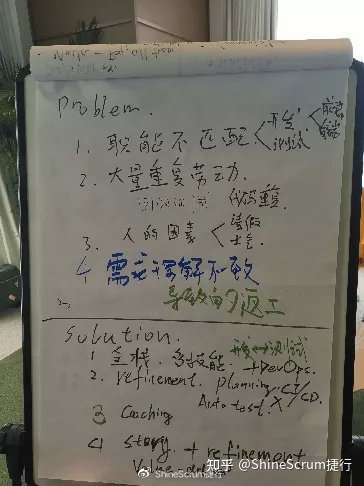 Problem.
1. 职能不匹配 < 开发 测试 < 前端 后端
2. 大量重复劳动.
代码
3. 人的因素 < 请假
4 需求理解不一致
导致的返工
Solution.
1 全栈. 多技能 开发↔测试 + DevOps.
2. refinement. planning. CI/CD.
Auto test
3 Coaching
4 story + refinement
Value
知乎 @ShineScrum捷行
@ShineScrum捷行